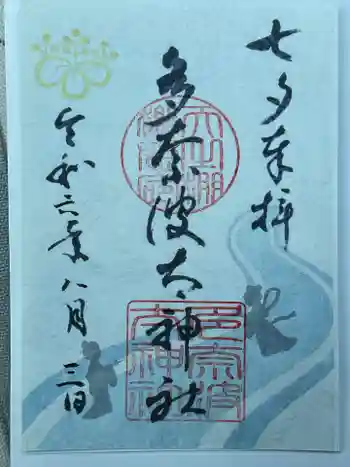 七夕奉拝
多奈波太神社
令和六年八月三日